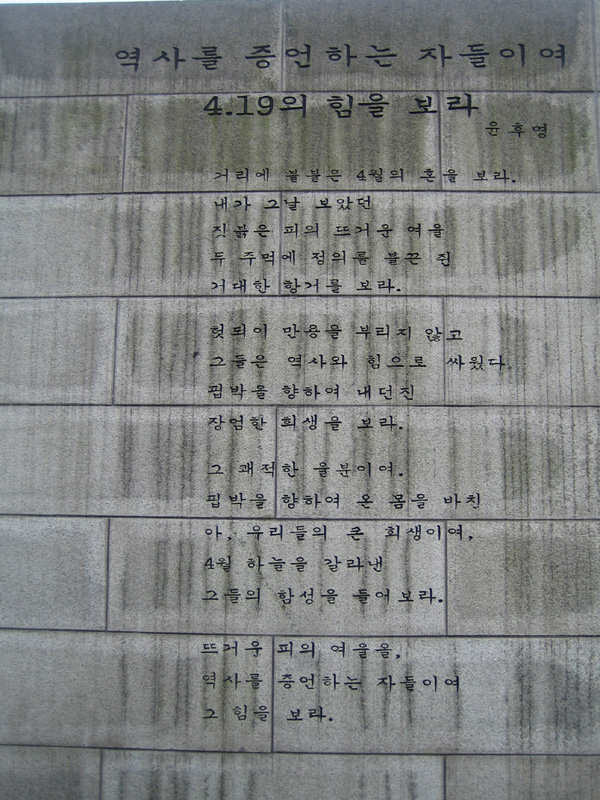 역사를 증언하는 자들이여
4.19의 힘을 보라
윤후명
거리에 불붙은 4월의 혼을 보라.
내가 그날 보았던
짓붉은 피의 뜨거운 여울
두 주먹에 정의를 불끈 쥔
거대한 항거를 보라.
헛되이 만용을 부리지 않고
그들은 역사와 힘으로 싸웠다
핍박을 향하여 내던진
장엄한 희생을 보라.
그 쾌적한 울분이여.
핍박을 향하여 온 몸을 바친
아, 우리들의 큰 희생이여,
4월 하늘을 갈라낸
그들의 함성을 들어보라.
뜨거운 피의 여울을,
역사를 증언하는 자들이여
그 힘을 보라.